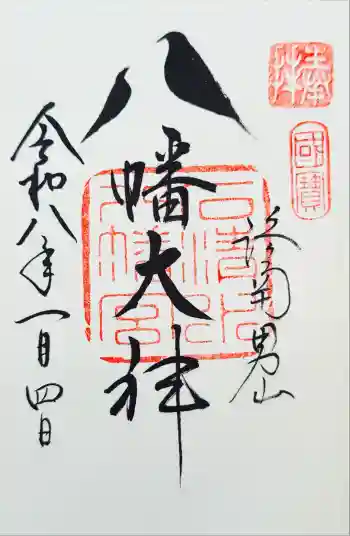 奉拝
國寶
男山
八幡大神
石清水
八幡宮
令和八年一月四日